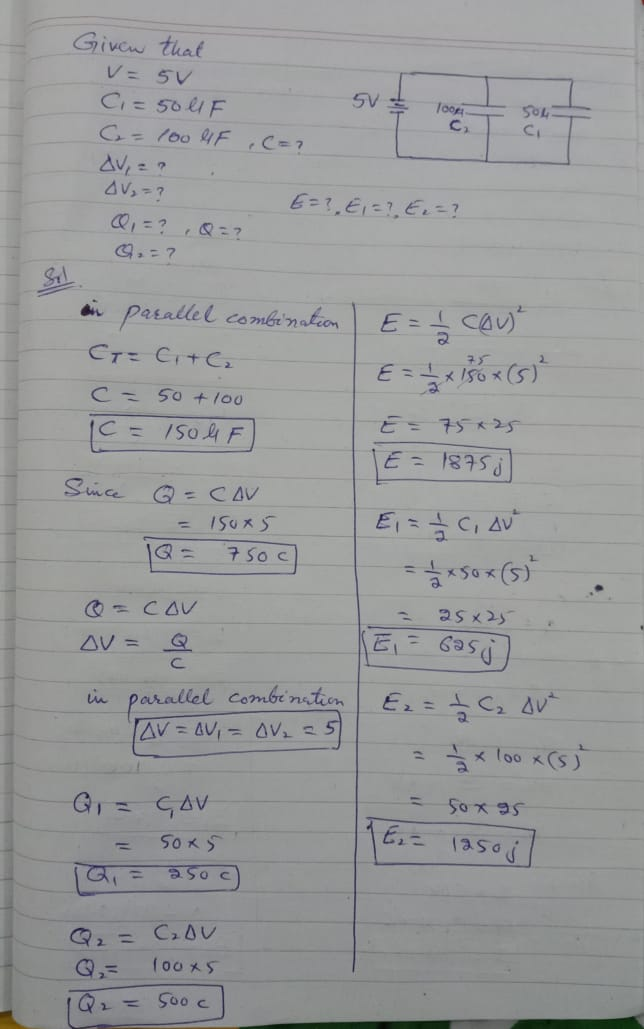 Given that
V = 5V
C₁ = 50 μF
C₂ = 100 μF , C = ?
ΔV₁ = ?
ΔV₂ = ?
Q₁ = ? , Q = ?
Q₂ = ?
5V
100μ
C₂
50μ
C₁
E = ?, E₁ = ?, E₂ = ?
Sol.
in parallel combination
C_T = C₁ + C₂
C = 50 + 100
C = 150 μF
Since Q = C ΔV
= 150 x 5
Q = 750 c
Q = C ΔV
ΔV = Q/C
in parallel combination
ΔV = ΔV₁ = ΔV₂ = 5
Q₁ = C₁ΔV
= 50 x 5
Q₁ = 250 c
Q₂ = C₂ΔV
Q₂ = 100 x 5
Q₂ = 500 c
E = 1/2 C(ΔV)²
75
E = 1/2 x 150 x (5)²
E = 75 x 25
E = 1875 j
E₁ = 1/2 C₁ ΔV²
= 1/2 x 50 x (5)²
= 25 x 25
E₁ = 625 j
E₂ = 1/2 C₂ ΔV²
= 1/2 x 100 x (5)²
= 50 x 25
E₂ = 1250 j